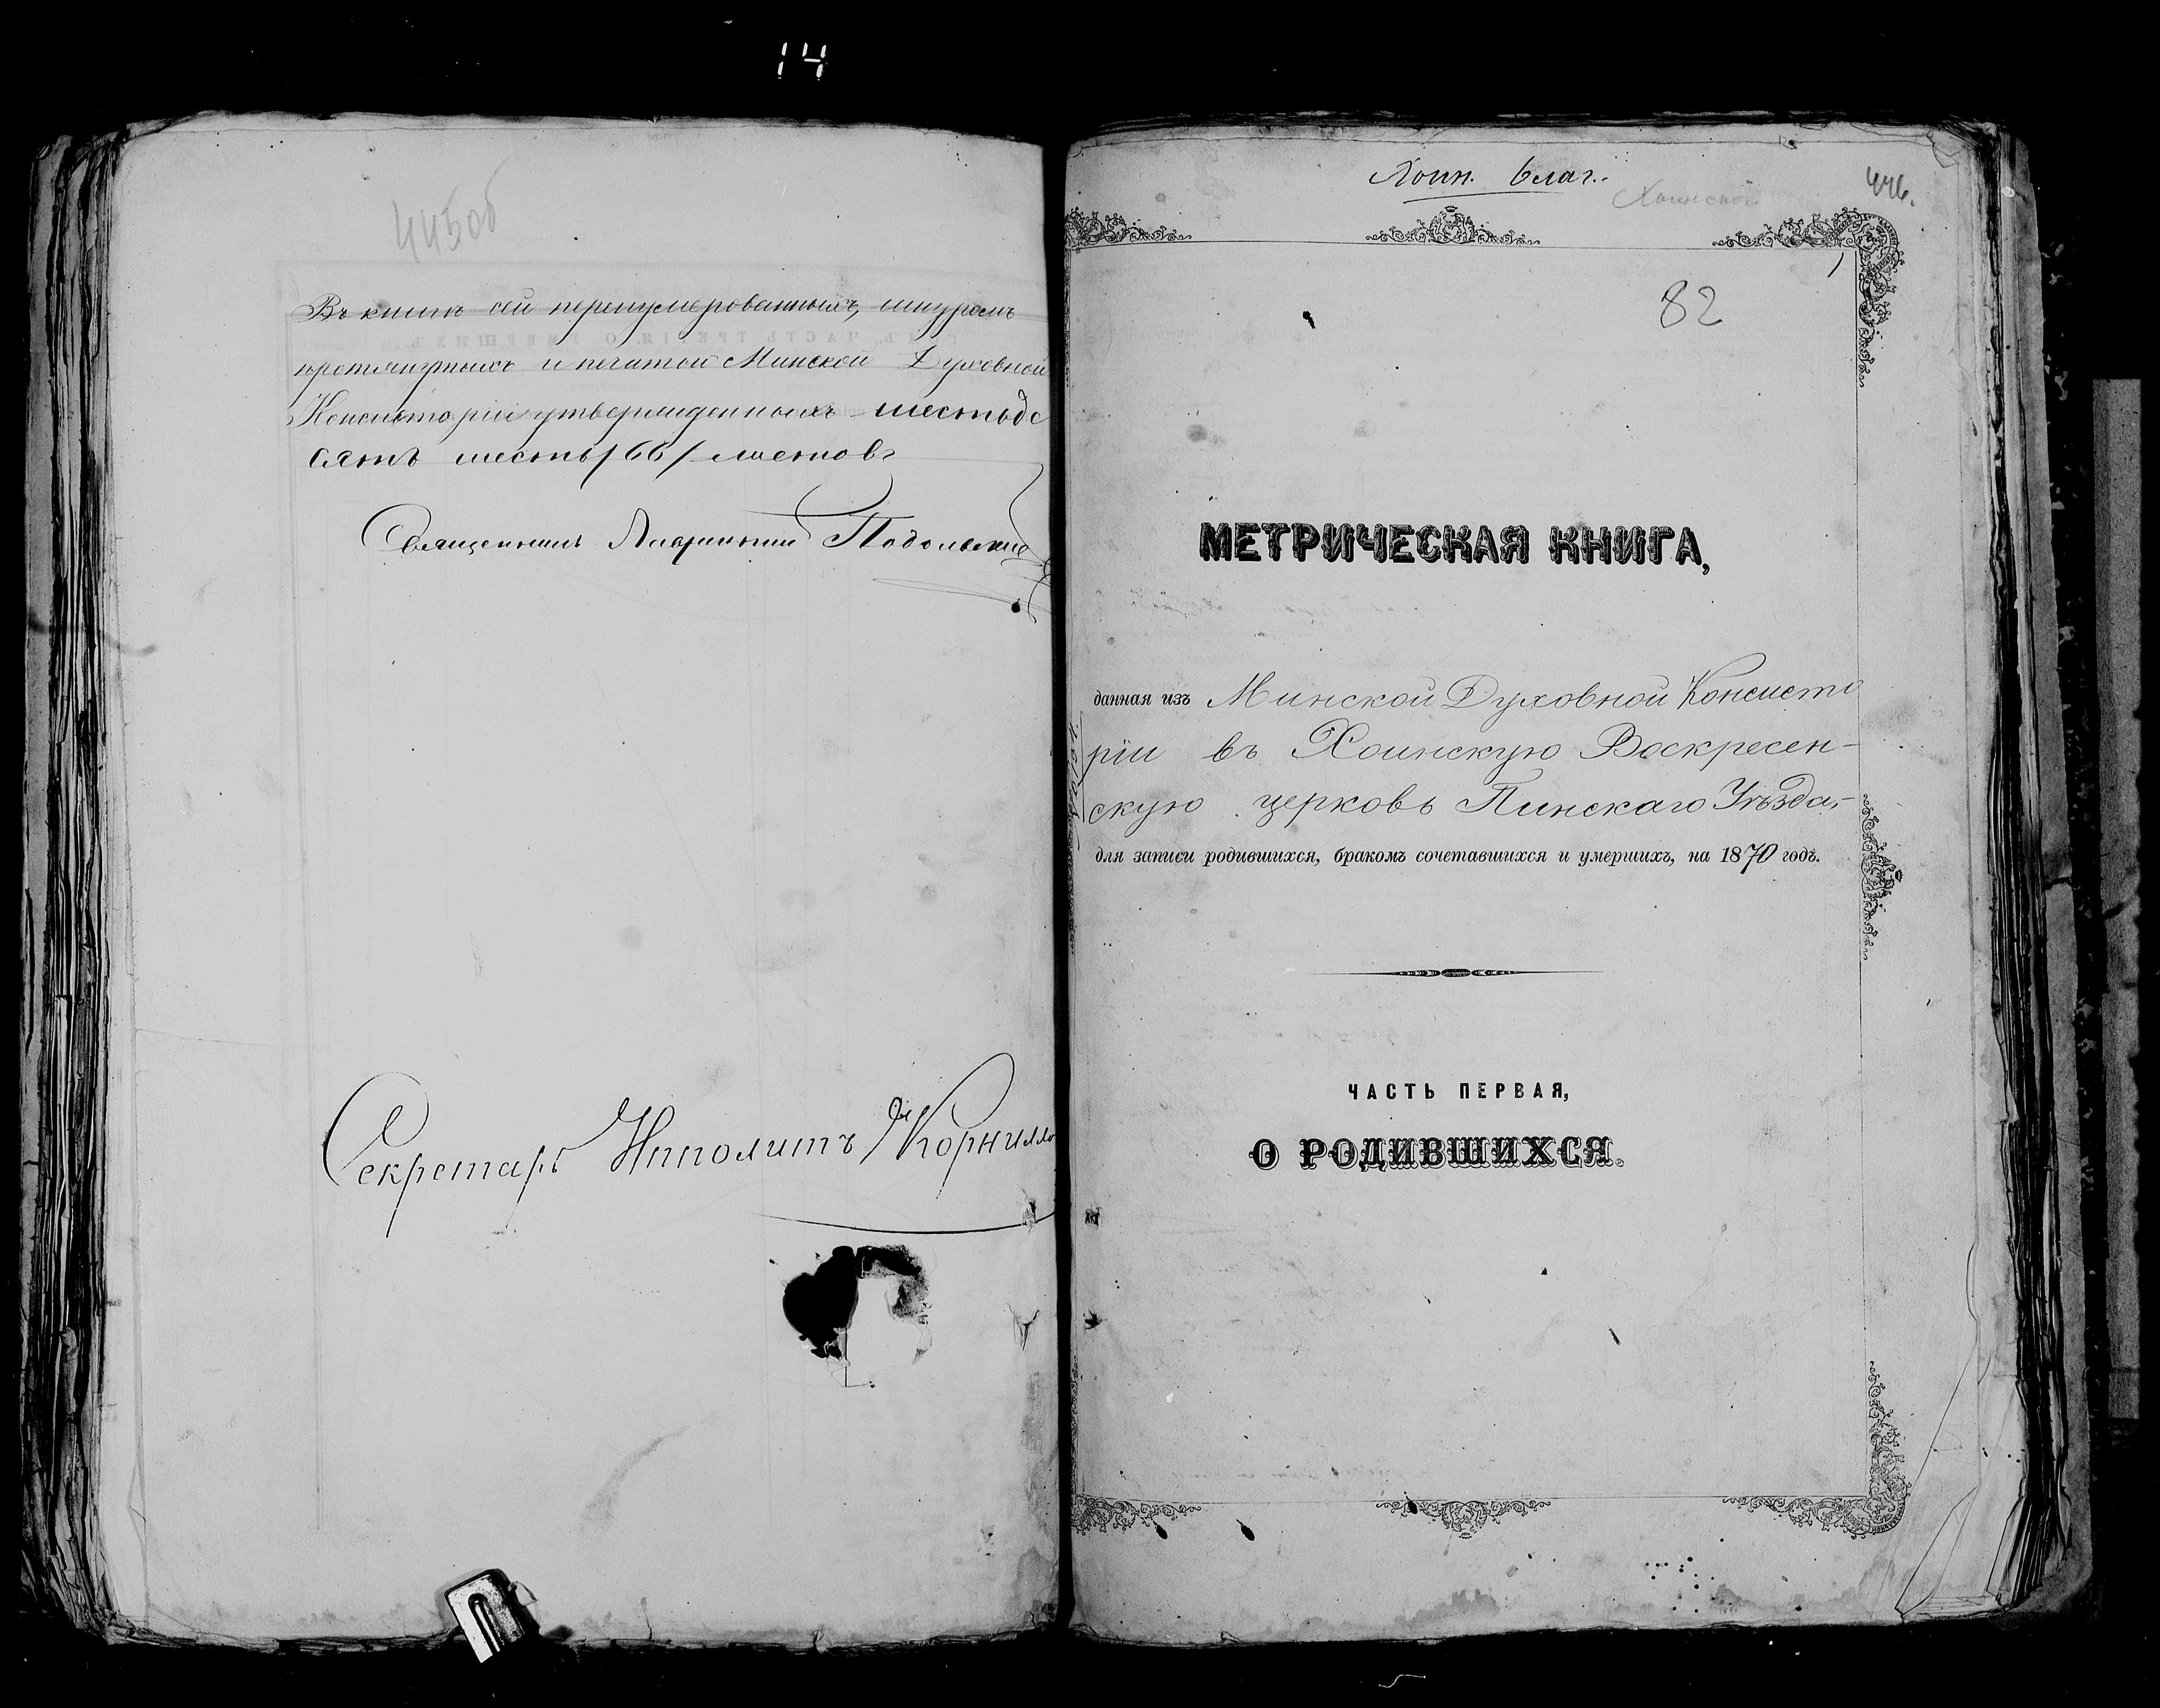 14
445об
Въ книгѣ сей перенумерованныхъ, шнуромъ
протянутыхъ и печатью Минской Духовной
Консисторіи утвержденныхъ шестьде
сятъ шесть /66/ листовъ
Священникъ Подольскій
Секретарь Ипполитъ Корнилло
Хоин. благ.
Хоинской
446.
82
1
МЕТРИЧЕСКАЯ КНИГА,
данная изъ Минской Духовной Консисто
ріи въ Хоинскую Воскресен-
скую церковь Пинскаго Уѣзда,-
для записи родившихся, бракомъ сочетавшихся и умершихъ, на 1870 годъ.
ЧАСТЬ ПЕРВАЯ,
О РОДИВШИХСЯ.